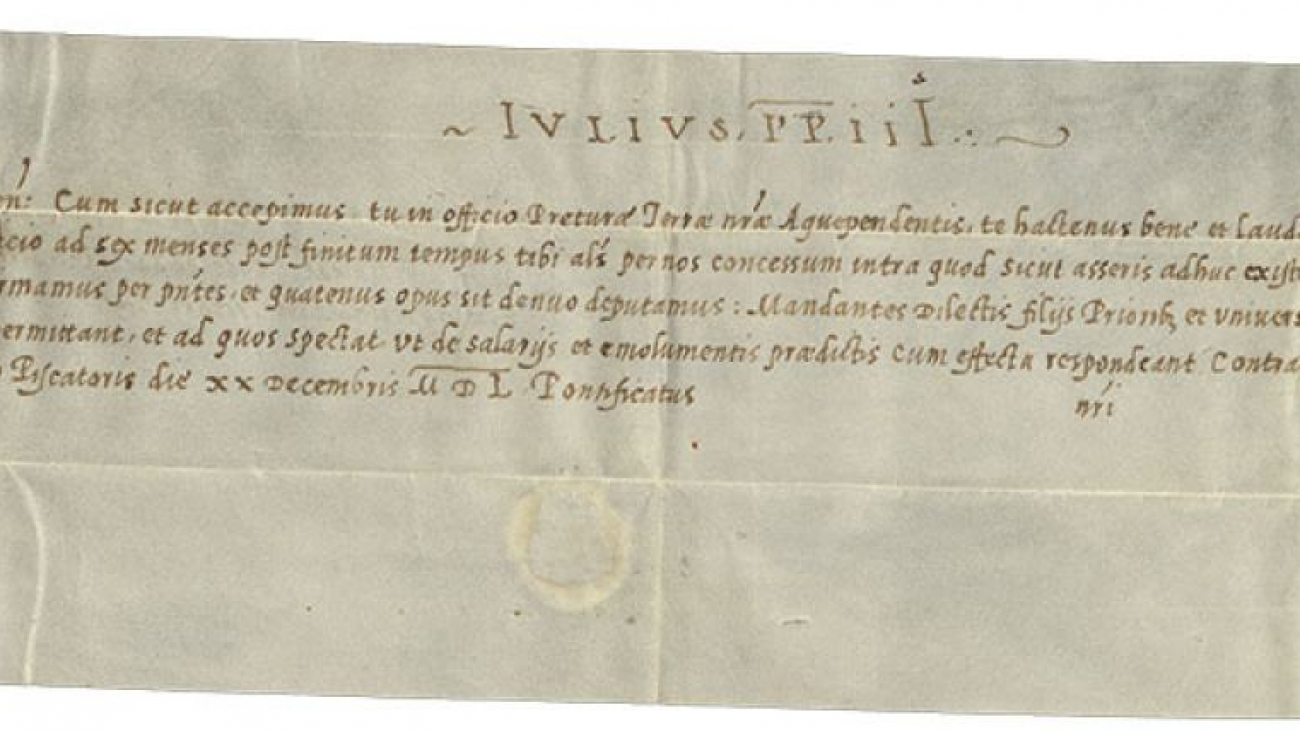 ~ IVLIVS. PP. iiI .·. ~
Cum sicut accepimus tu in officio Preturæ Terræ nr̃æ Aquependentis, te hactenus bene et laud
cio ad sex menses post finitum tempus tibi al's per nos concessum intra quod sicut asseris adhuc existi
rmamus per pn̄tes, et quatenus opus sit denuo deputamus : Mandantes Dilectis filijs Priorib; et vnivers
ermittant, et ad quos spectat vt de salarijs et emolumentis prædictis cum effectu respondeant Contra
Piscatoris die xx Decembris MDL Pontificatus nr̃i